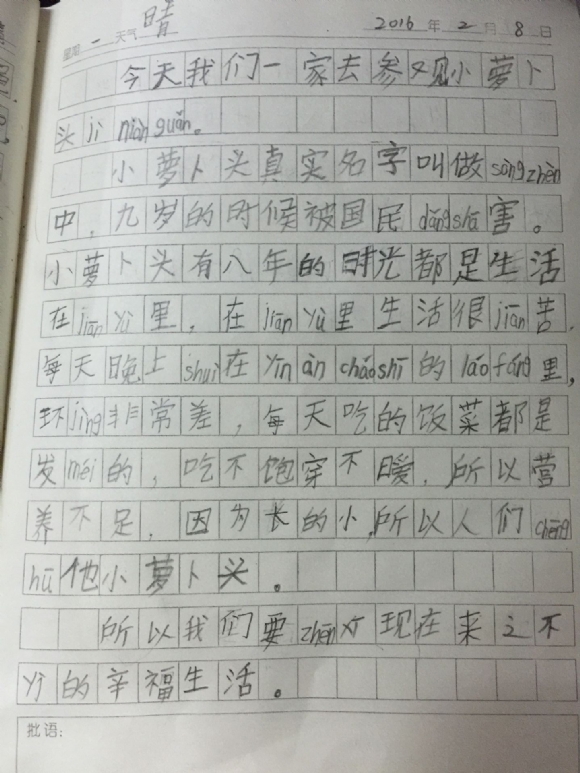 星期一 天气 晴 2016年2月8日
今天我们一家去参又见小萝卜
头jì niàn guǎn。
小萝卜头真实名字叫做sòng zhèn
中，九岁的时候被国民dǎng shā害。
小萝卜头有八年的时光都是生活
在jiān yù里，在jiān yù里生活很jiān苦.
每天晚上shuì在yīn àn cháo shī的láo fáng里，
环jìng非常差，每天吃的饭菜都是
发méi的，吃不饱穿不暖，所以营
养不足，因为长的小，所以人们chēng
hū他小萝卜头。
所以我们要zhēn xī现在来之不
yì的辛福生活。
批语: